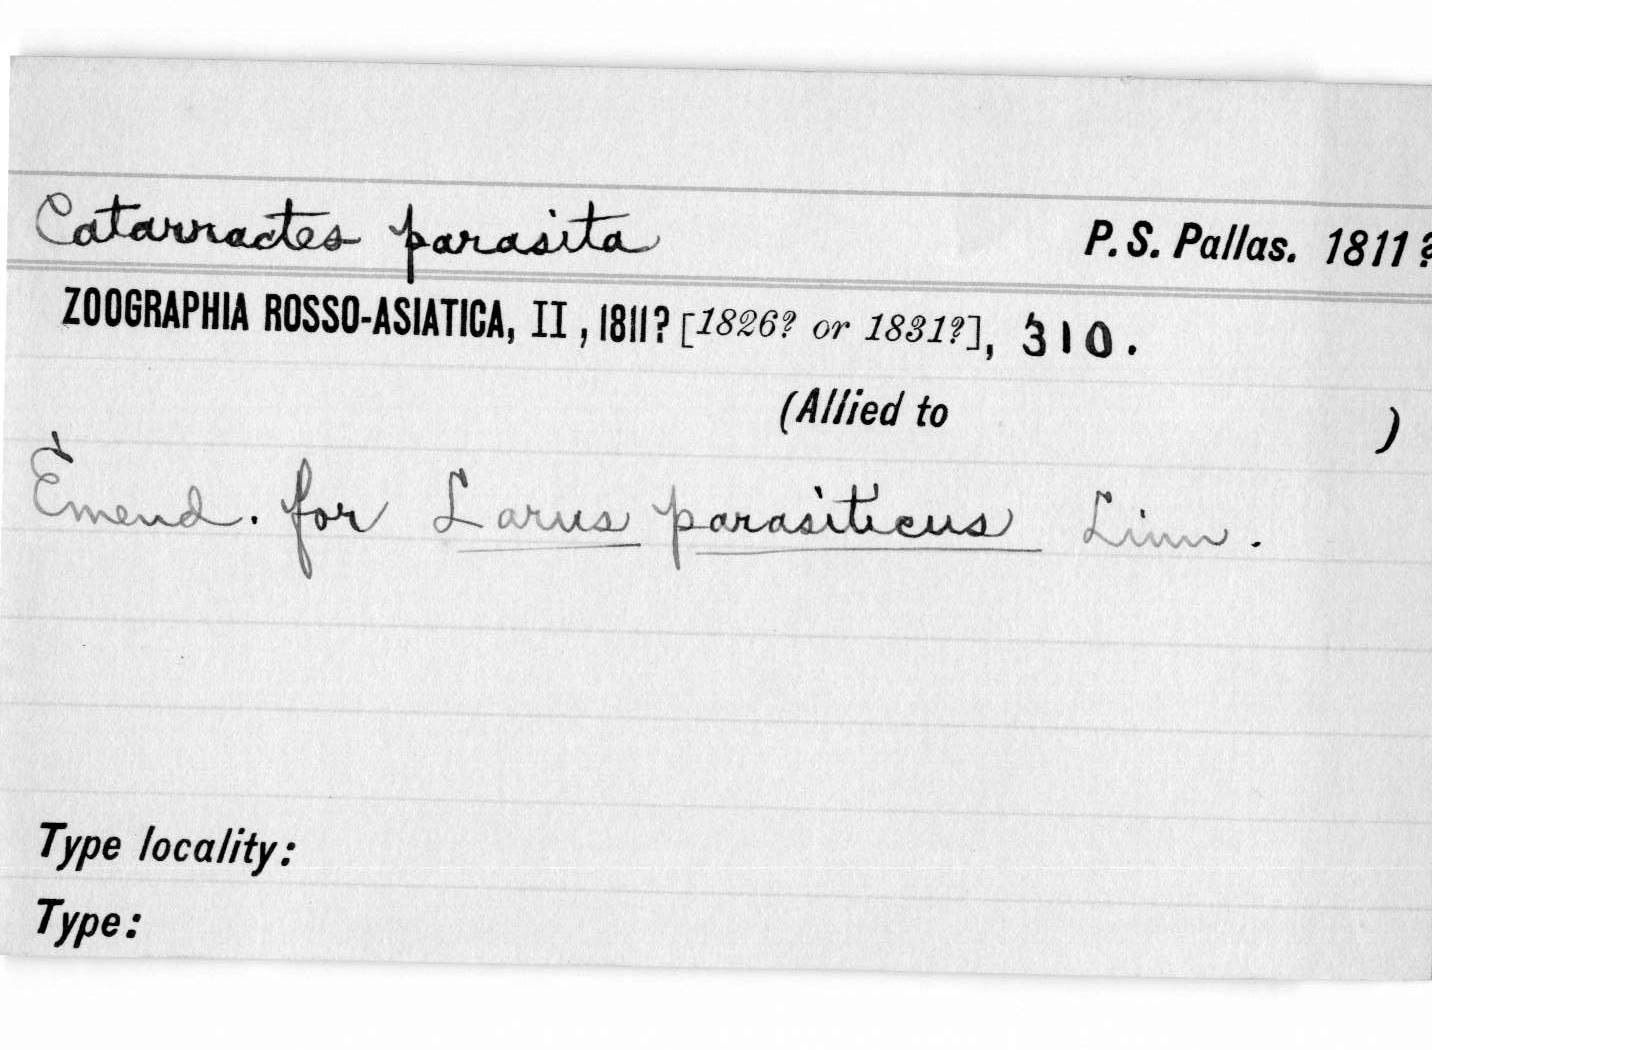 Catarractes parasita P. S. Pallas. 1811?
ZOOGRAPHIA ROSSO-ASIATICA, II, 1811? [1826? or 1831?], 310.
(Allied to )
Emend. for Larus parasiticus Linn.
Type locality:
Type: